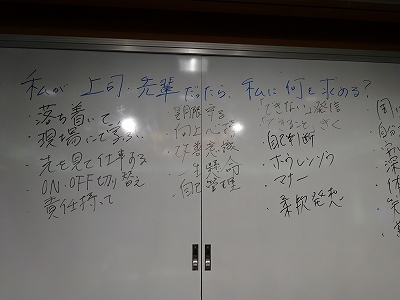 私が 上司・先輩だったら、私に何を求める?
・落ち着いて
・現場にて学ぶ
・先を見て仕事する
・ON・OFF切り替え
・責任持って
・期限守る
・向上心
・改善意識
・一生懸命
・自己管理
・「できない」発信
「できること」きく
・自己判断
・ホウレンソウ
・マナー
・柔軟発想